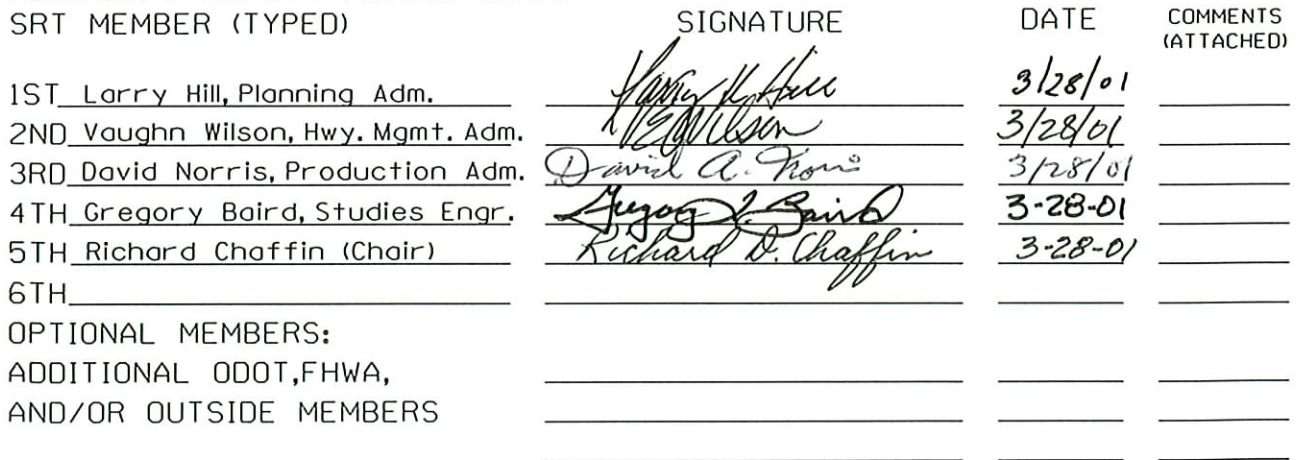 SRT MEMBER (TYPED) SIGNATURE DATE COMMENTS
(ATTACHED)
1ST Larry Hill, Planning Adm. Larry K. Hill 3/28/01
2ND Vaughn Wilson, Hwy. Mgmt. Adm. VEWilson 3/28/01
3RD David Norris, Production Adm. David A. Norris 3/28/01
4TH Gregory Baird, Studies Engr. Gregory L. Baird 3-28-01
5TH Richard Chaffin (Chair) Richard D. Chaffin 3-28-01
6TH
OPTIONAL MEMBERS:
ADDITIONAL ODOT,FHWA,
AND/OR OUTSIDE MEMBERS